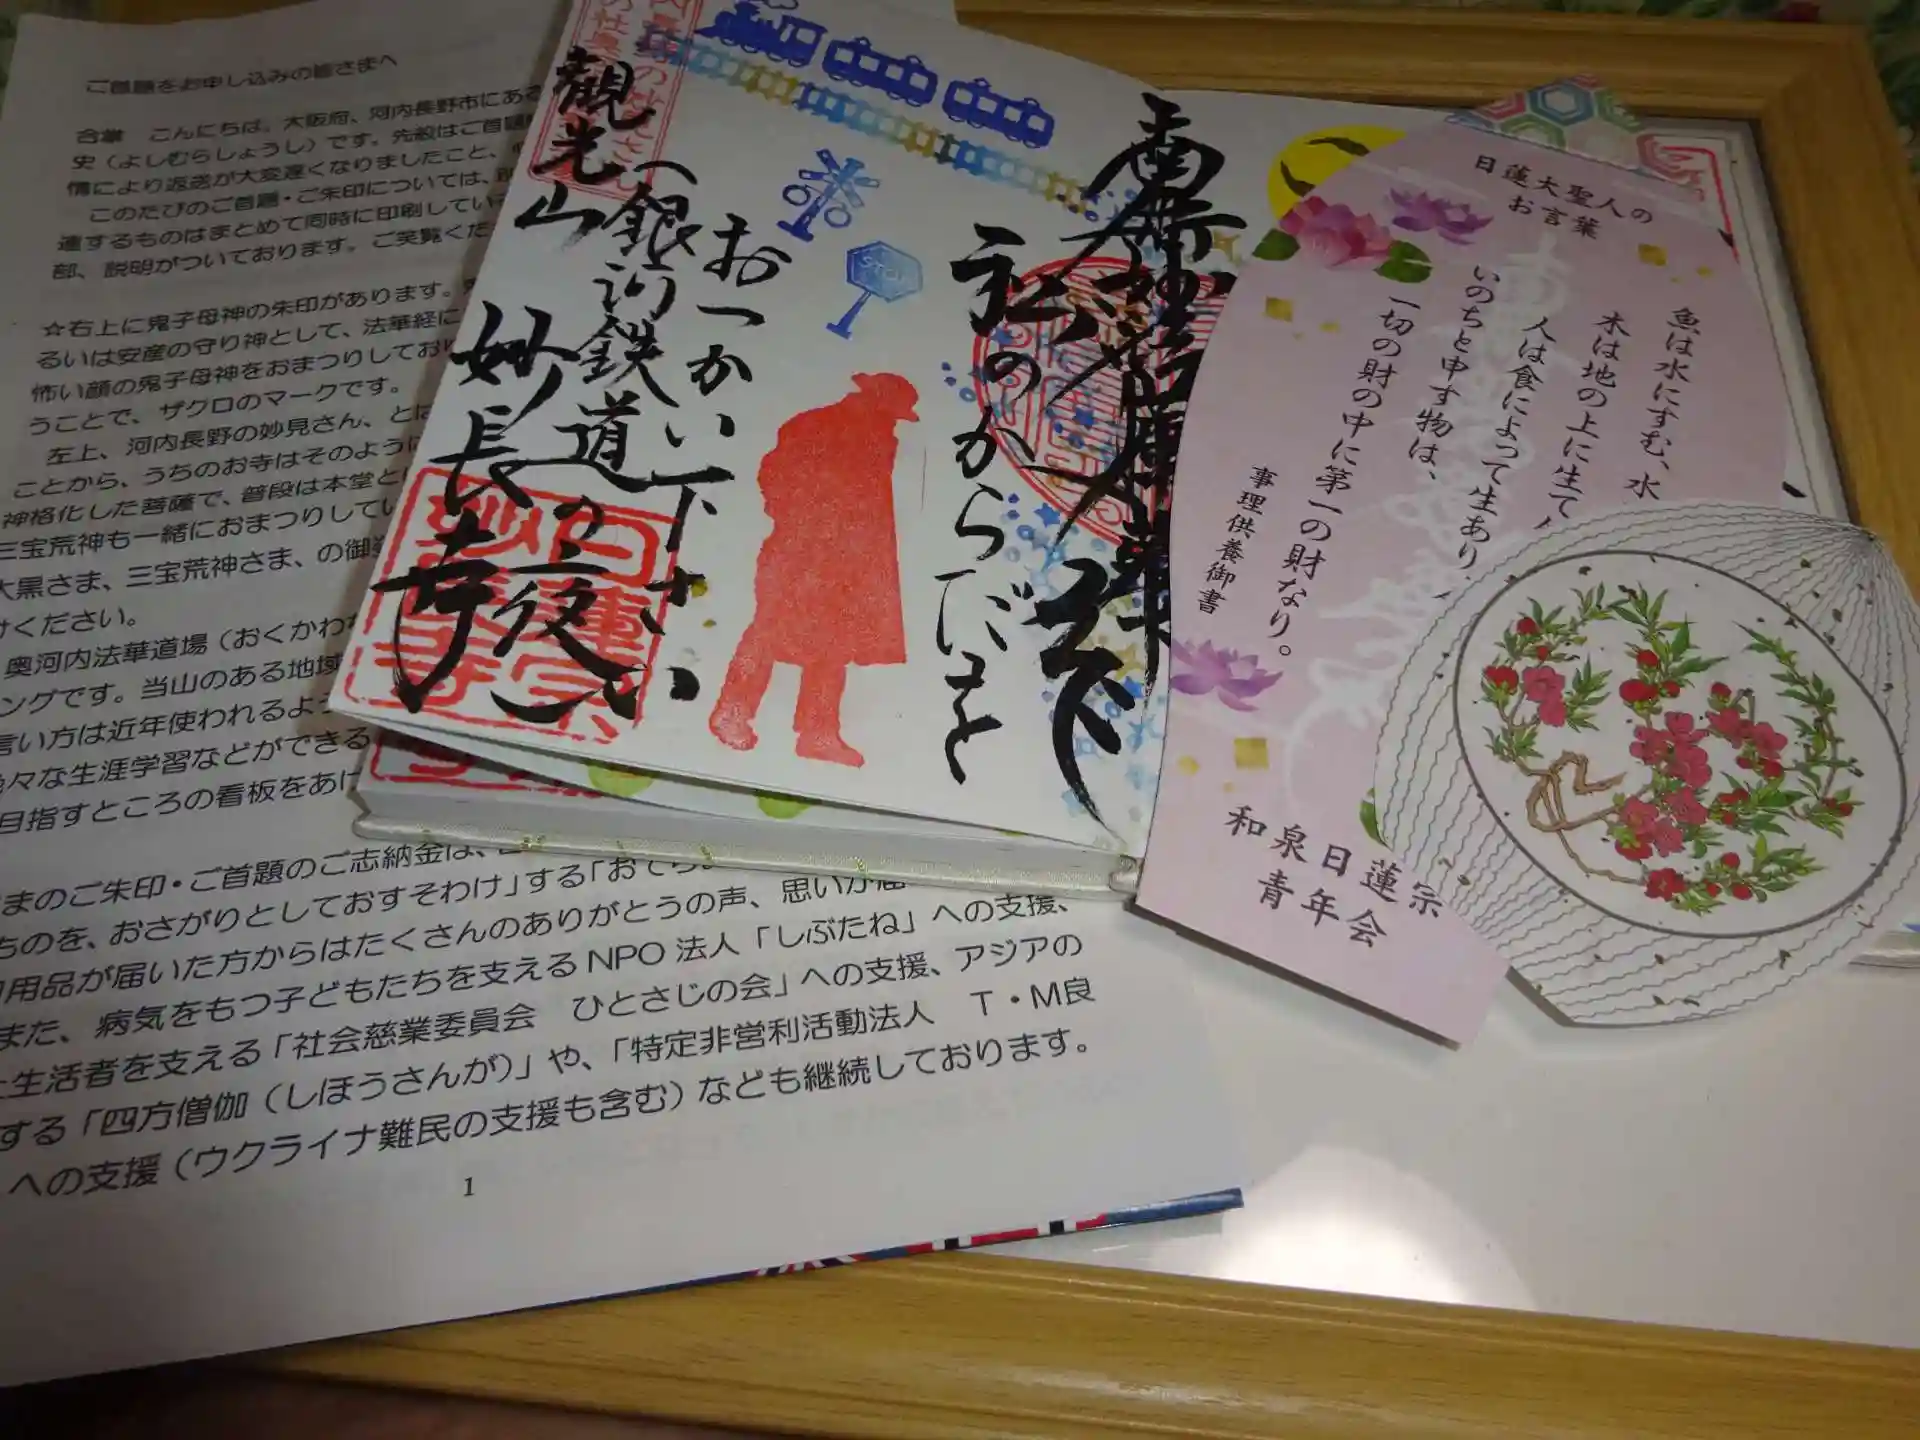 ご首題をお申し込みの皆さまへ
合掌　こんにちは。大阪府、河内長野市にある
史（よしむらしょうし）です。先般はご首題
情により返送が大変遅くなりましたこと、
このたびのご首題・ご朱印については、
連するものはまとめて同時に印刷してい
部、説明がついております。ご笑覧くだ
☆右上に鬼子母神の朱印があります。
るいは安産の守り神として、法華経に
怖い顔の鬼子母神をおまつりしており
うことで、ザクロのマークです。
左上、河内長野の妙見さん、とは
ことから、うちのお寺はそのように
神格化した菩薩で、普段は本堂と
三宝荒神も一緒におまつりしてい
大黒さま、三宝荒神さま、の御
けください。
奥河内法華道場（おくかわち
ングです。当山のある地域
言い方は近年使われるよ
々な生涯学習などができる
目指すところの看板をあげ
まのご朱印・ご首題のご志納金は、
ちのを、おさがりとしておすそわけ」する「おてら
用品が届いた方からはたくさんのありがとうの声、思いが届
また、病気をもつ子どもたちを支えるNPO法人「しぶたね」への支援、
生活者を支える「社会慈業委員会　ひとさじの会」への支援、アジアの
する「四方僧伽（しほうさんが）」や、「特定非営利活動法人　T・M良
への支援（ウクライナ難民の支援も含む）なども継続しております。
1
南無妙法蓮華経
私のからだを
おつかい下さい
（銀河鉄道の夜）
観光山
妙長寺
STOP
日蓮大聖人の
お言葉
魚は水にすむ、水
木は地の上に生て
人は食によって生あり
いのちと申す物は、
一切の財の中に第一の財なり。
事理供養御書
和泉日蓮宗
青年会